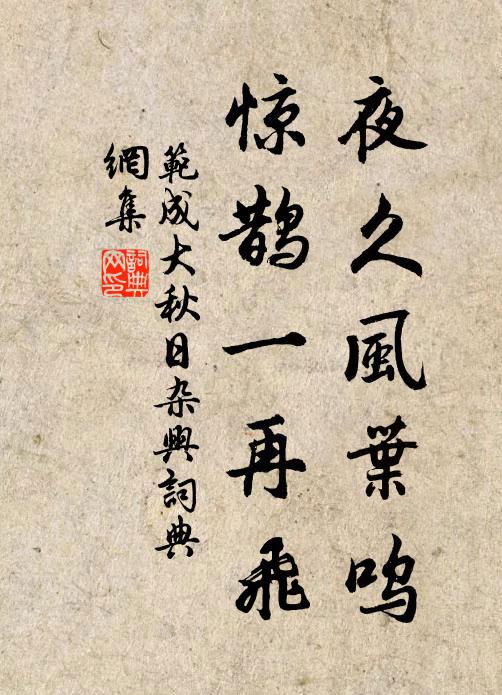 夜久風葉鸣
惊鹊一再飛
範成大秋日杂興詞典
網集
詞典網印